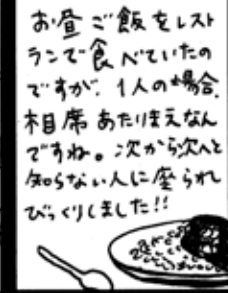 お昼ご飯をレスト
ランで食べていたの
ですが、1人の場合、
相席あたりまえなん
ですね。次から次へと
知らない人に座られ
びっくりしました!!